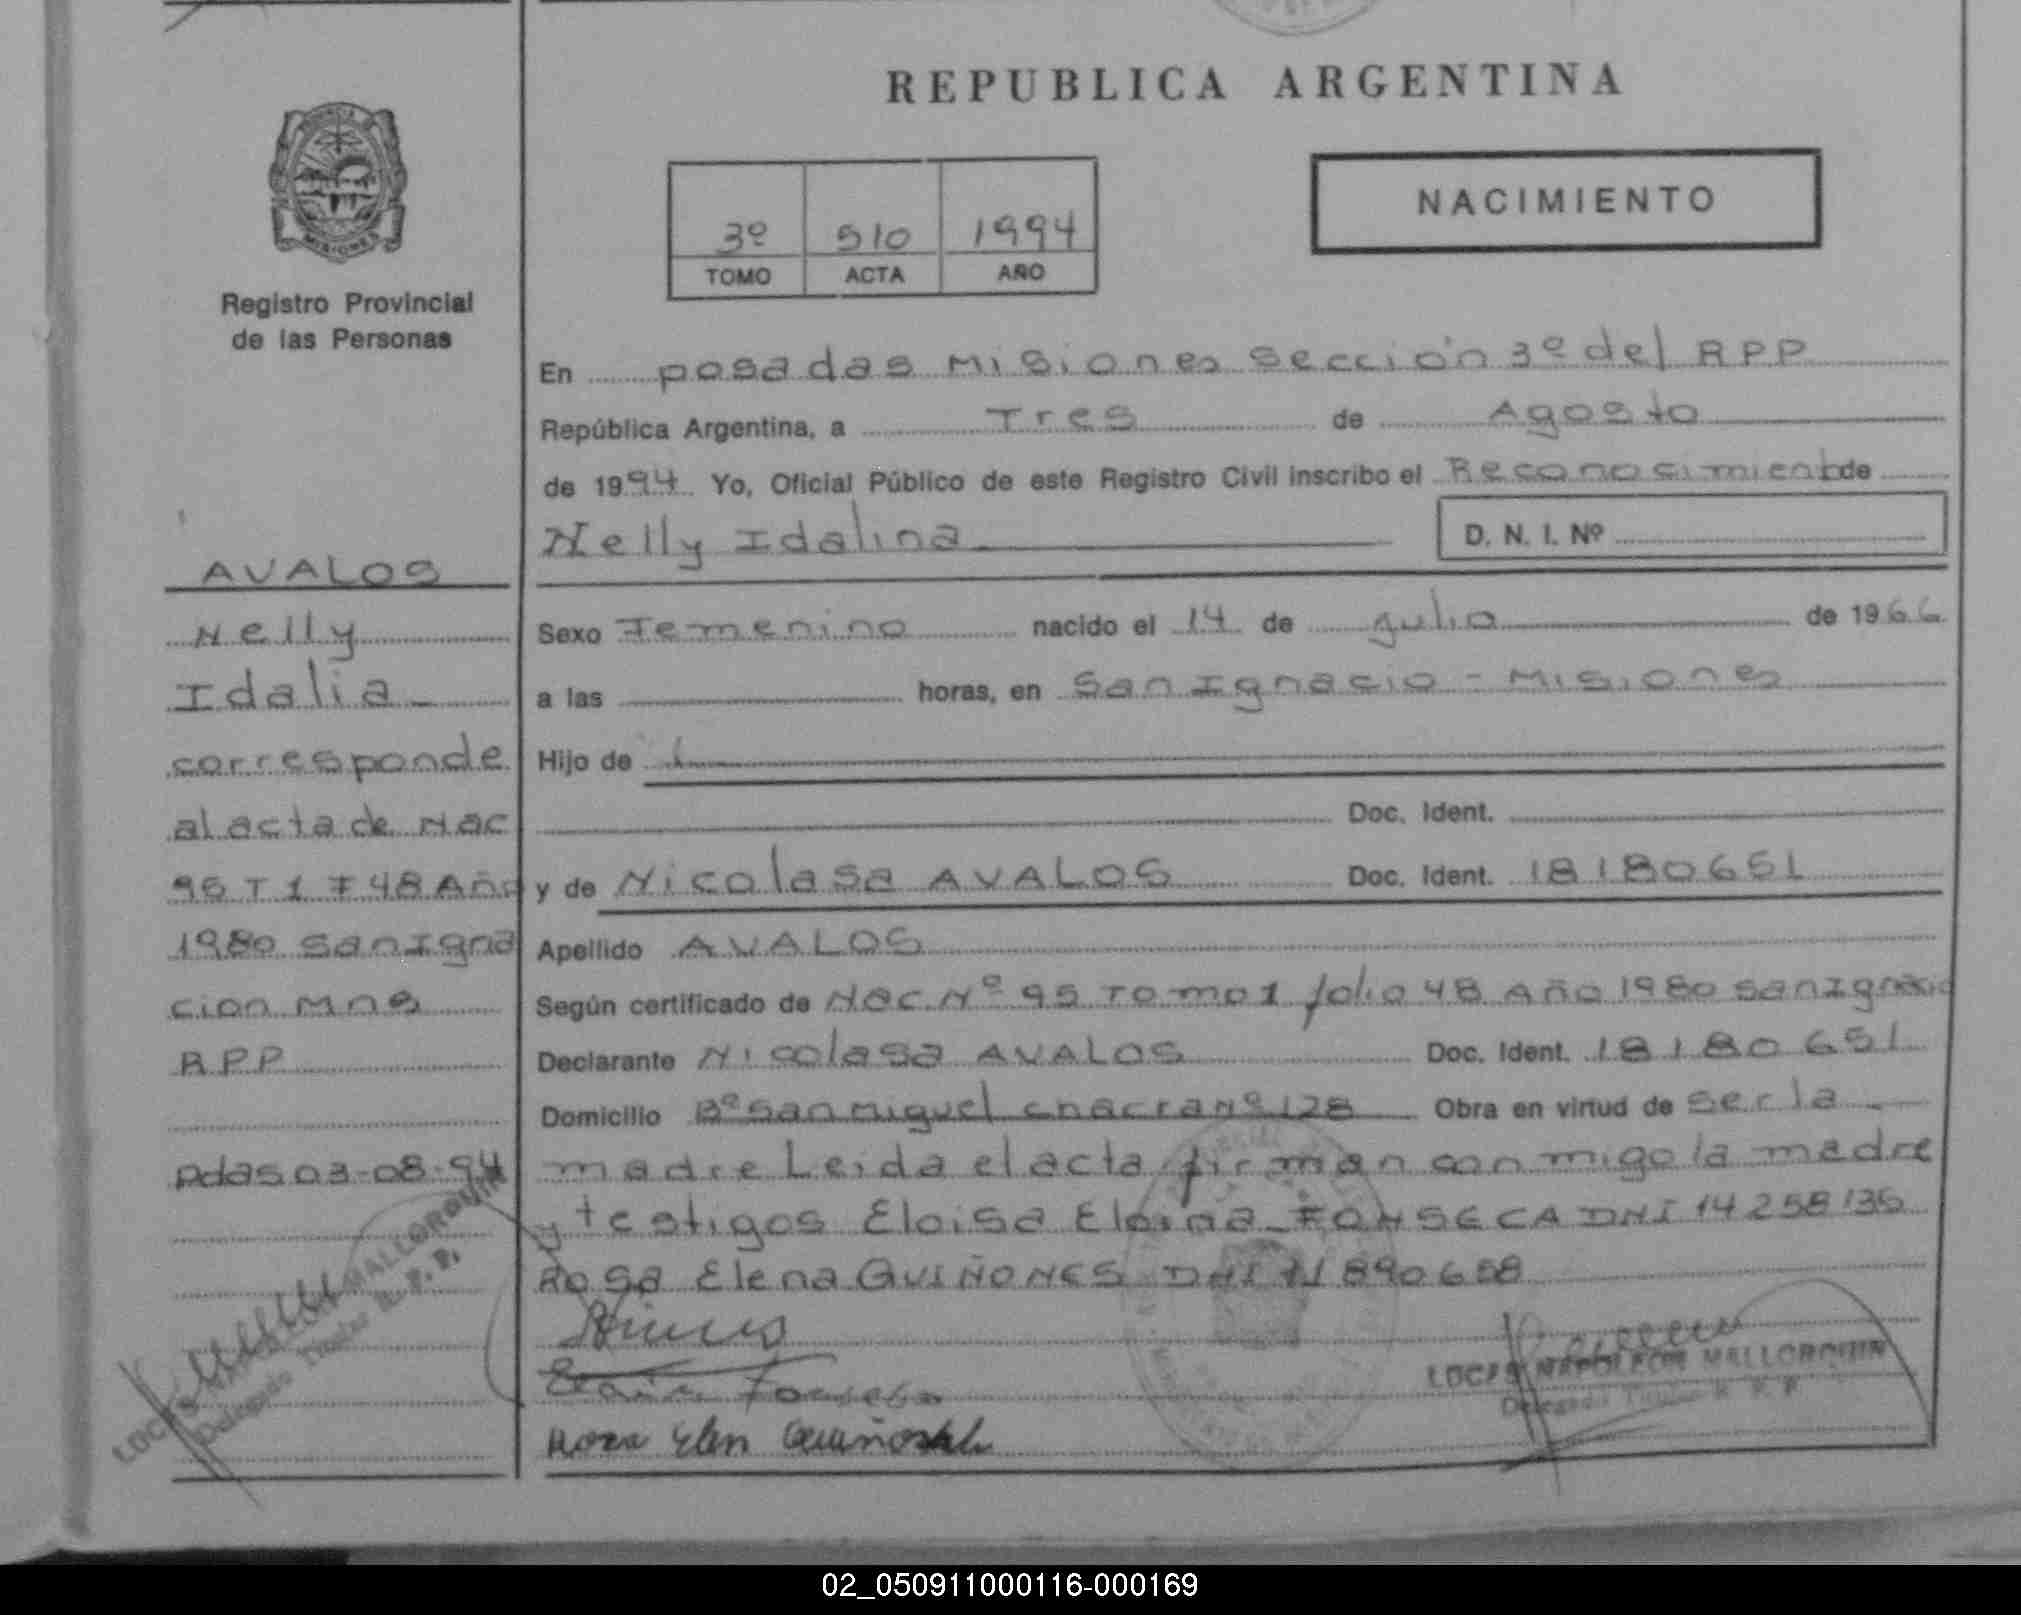 REPUBLICA ARGENTINA
MISIONES
Registro Provincial
de las Personas
3º 510 1994
TOMO ACTA AÑO
NACIMIENTO
En posadas Misiones Sección 3º del RPP
República Argentina, a Tres de Agosto
de 1994 Yo, Oficial Público de este Registro Civil inscribo el Reconosimiento de
Nelly Idalina
D. N. I. Nº
AVALOS
Nelly
Idalia
corresponde
al acta de Nac
95 T 1 F 48 Año
1980 San Igna
cion Mnes
RPP
Pdas 03-08-94
Sexo Femenino nacido el 14 de Julio de 1966
a las horas, en San Ignacio - Misiones
Hijo de
Doc. Ident.
y de Nicolasa AVALOS Doc. Ident. 18180651
Apellido AVALOS
Según certificado de Nac Nº 95 Tomo 1 folio 48 Año 1980 San Ignacio
Declarante Nicolasa AVALOS Doc. Ident. 18180651
Domicilio Bº San Miguel chacra Nº 128 Obra en virtud de Ser la
madre Leida el acta firman con migo la madre
y testigos Eloisa FONSECA DNI 14258136
Rosa Elena QUIÑONES DNI 11890658
Fonseca
Rosa Elen Quiñones
LUCAS NAPOLEON MALLORQUIN
Delegado Titular R. P. P.
LUCAS NAPOLEON MALLORQUIN
Delegado Titular R. P. P.
02_050911000116-000169